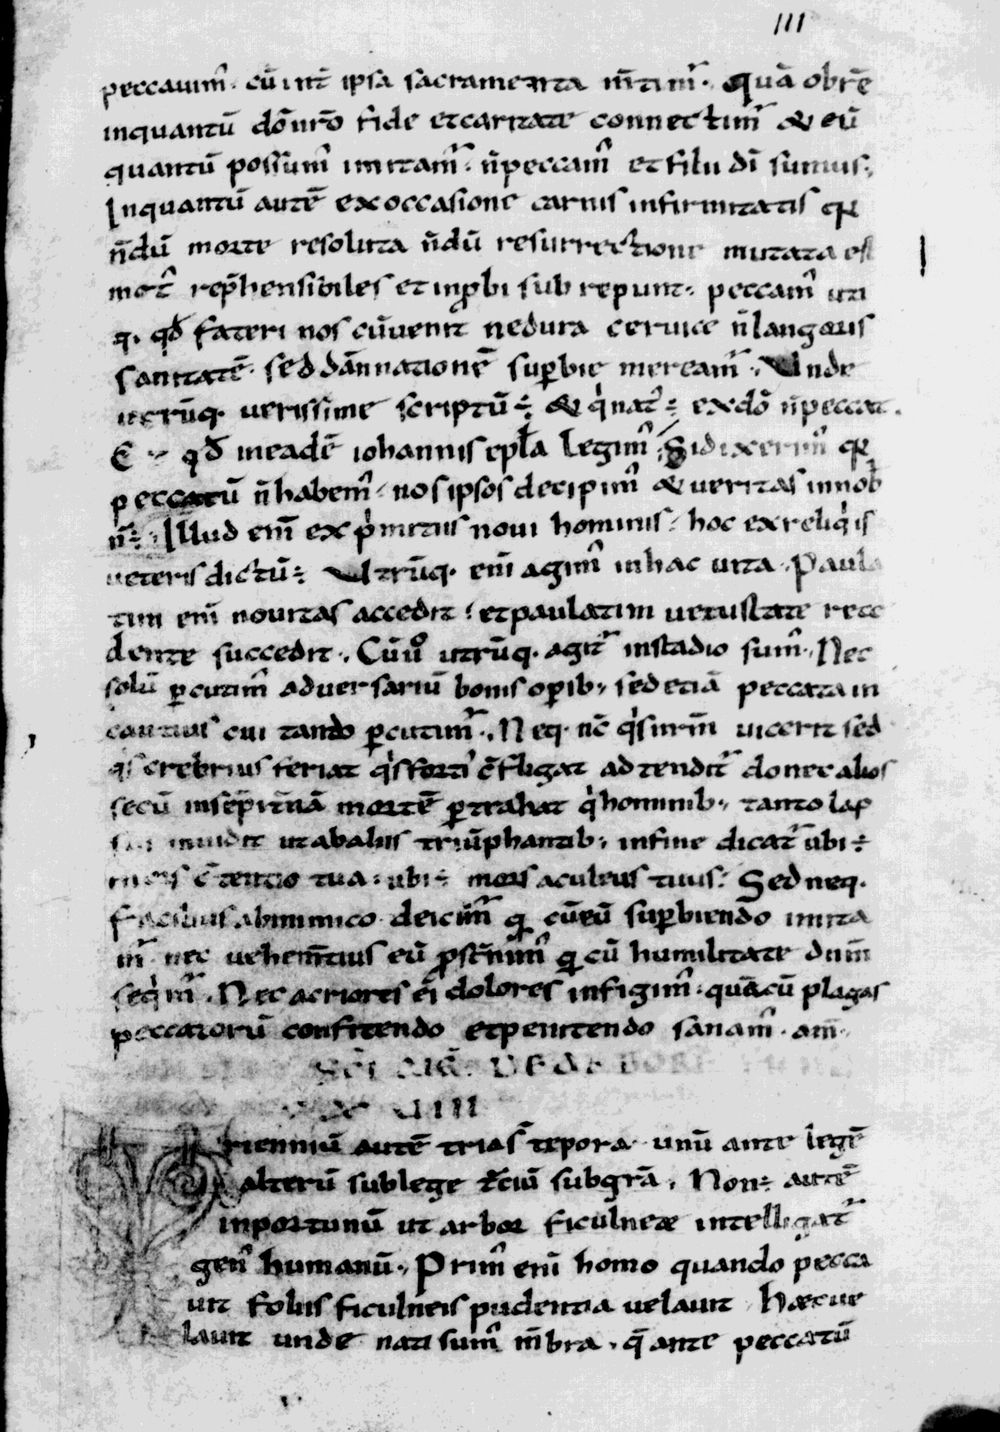 111
peccauim̄. cū int̄ ipsa sacramenta m̄tim᷒. Quā obrē
inquantū dōnrō fide et caritate connectim᷒ & eū
quantū possum᷒ imitam᷒. n̄ peccam᷒ et filii dī sumus.
Inquantū autē ex occasione carnis infirmitatis q̄
n̄dū morte resoluta n̄dū resurrectione mutata est
mot᷒ rep̄hensibiles et inp̄bi subrepunt. peccam᷒ uti
q. qd̄ fateri nos cūuenit ne dura ceruice n̄ languoris
sanitatē. sed dānationē sup̄bie meream᷒. Unde
utrūq. uerissime scriptū ÷ & q̇ nat᷒ ÷ ex dō n̄ peccat.
Et qd̄ in eadē iohannis epl̄a legim᷒ Si dixerim᷒ q̄
peccatū n̄ habem᷒. nos ipsos decipim᷒ & ueritas in nob̄
n̄ ÷. Illud enī ex ṗmitiis noui hominis. hoc ex reliq̇is
ueteris dictū ÷. Utrūq. enī agim᷒ in hac uita. Paula
tim enī nouitas accedit. et paulatim uetustate rece
dente succedit. Cū uº utrūq. agit᷒ in stadio sum᷒. Nec
solū p̄cutim᷒ aduersariū bonis op̄ib; sed etiā peccata in
cautius cui tando p̄cutim᷒. Neq. nc̄ q̇s in rm̄ uicerit sed
q̇s crebrius feriat q̇s forti᷒ c̄fligat adtendit᷒ donec alios
secū in sep̄itnā mortē p̄trahat q̇ hominib; tanto lap
sui inuidit ut ab aliis triūphantib; in fine dicat᷒ ubi ÷
mors c̄tentio tua. ubi ÷ mors aculeus tuus. Sed neq.
facilius ab inimico deicim᷒ q̄ cū eū sup̄biendo imita
m᷒. nec uehem̄tius eū p̄stn̄im᷒ q̄ cū humilitate dn̄m
seq̇m᷒. Nec acriores ei dolores infigim᷒. quā cū plagas
peccatorū confitendo et penitendo sanam᷒. am̄.
DE ARBORE
Trienniū autē tria s̄ tēpora. unū ante legē
alterū sub lege tc̄iū sub gra᷃. Non ÷ autē
inportunū ut arbor ficulneae intelligat᷒
gen᷒ humanū. Prim᷒ enī homo quando pecca
uit foliis ficulneis pudentia uelauit. Haec ue
lauit unde nati sum᷒ m̄bra. q̄ ante peccatū